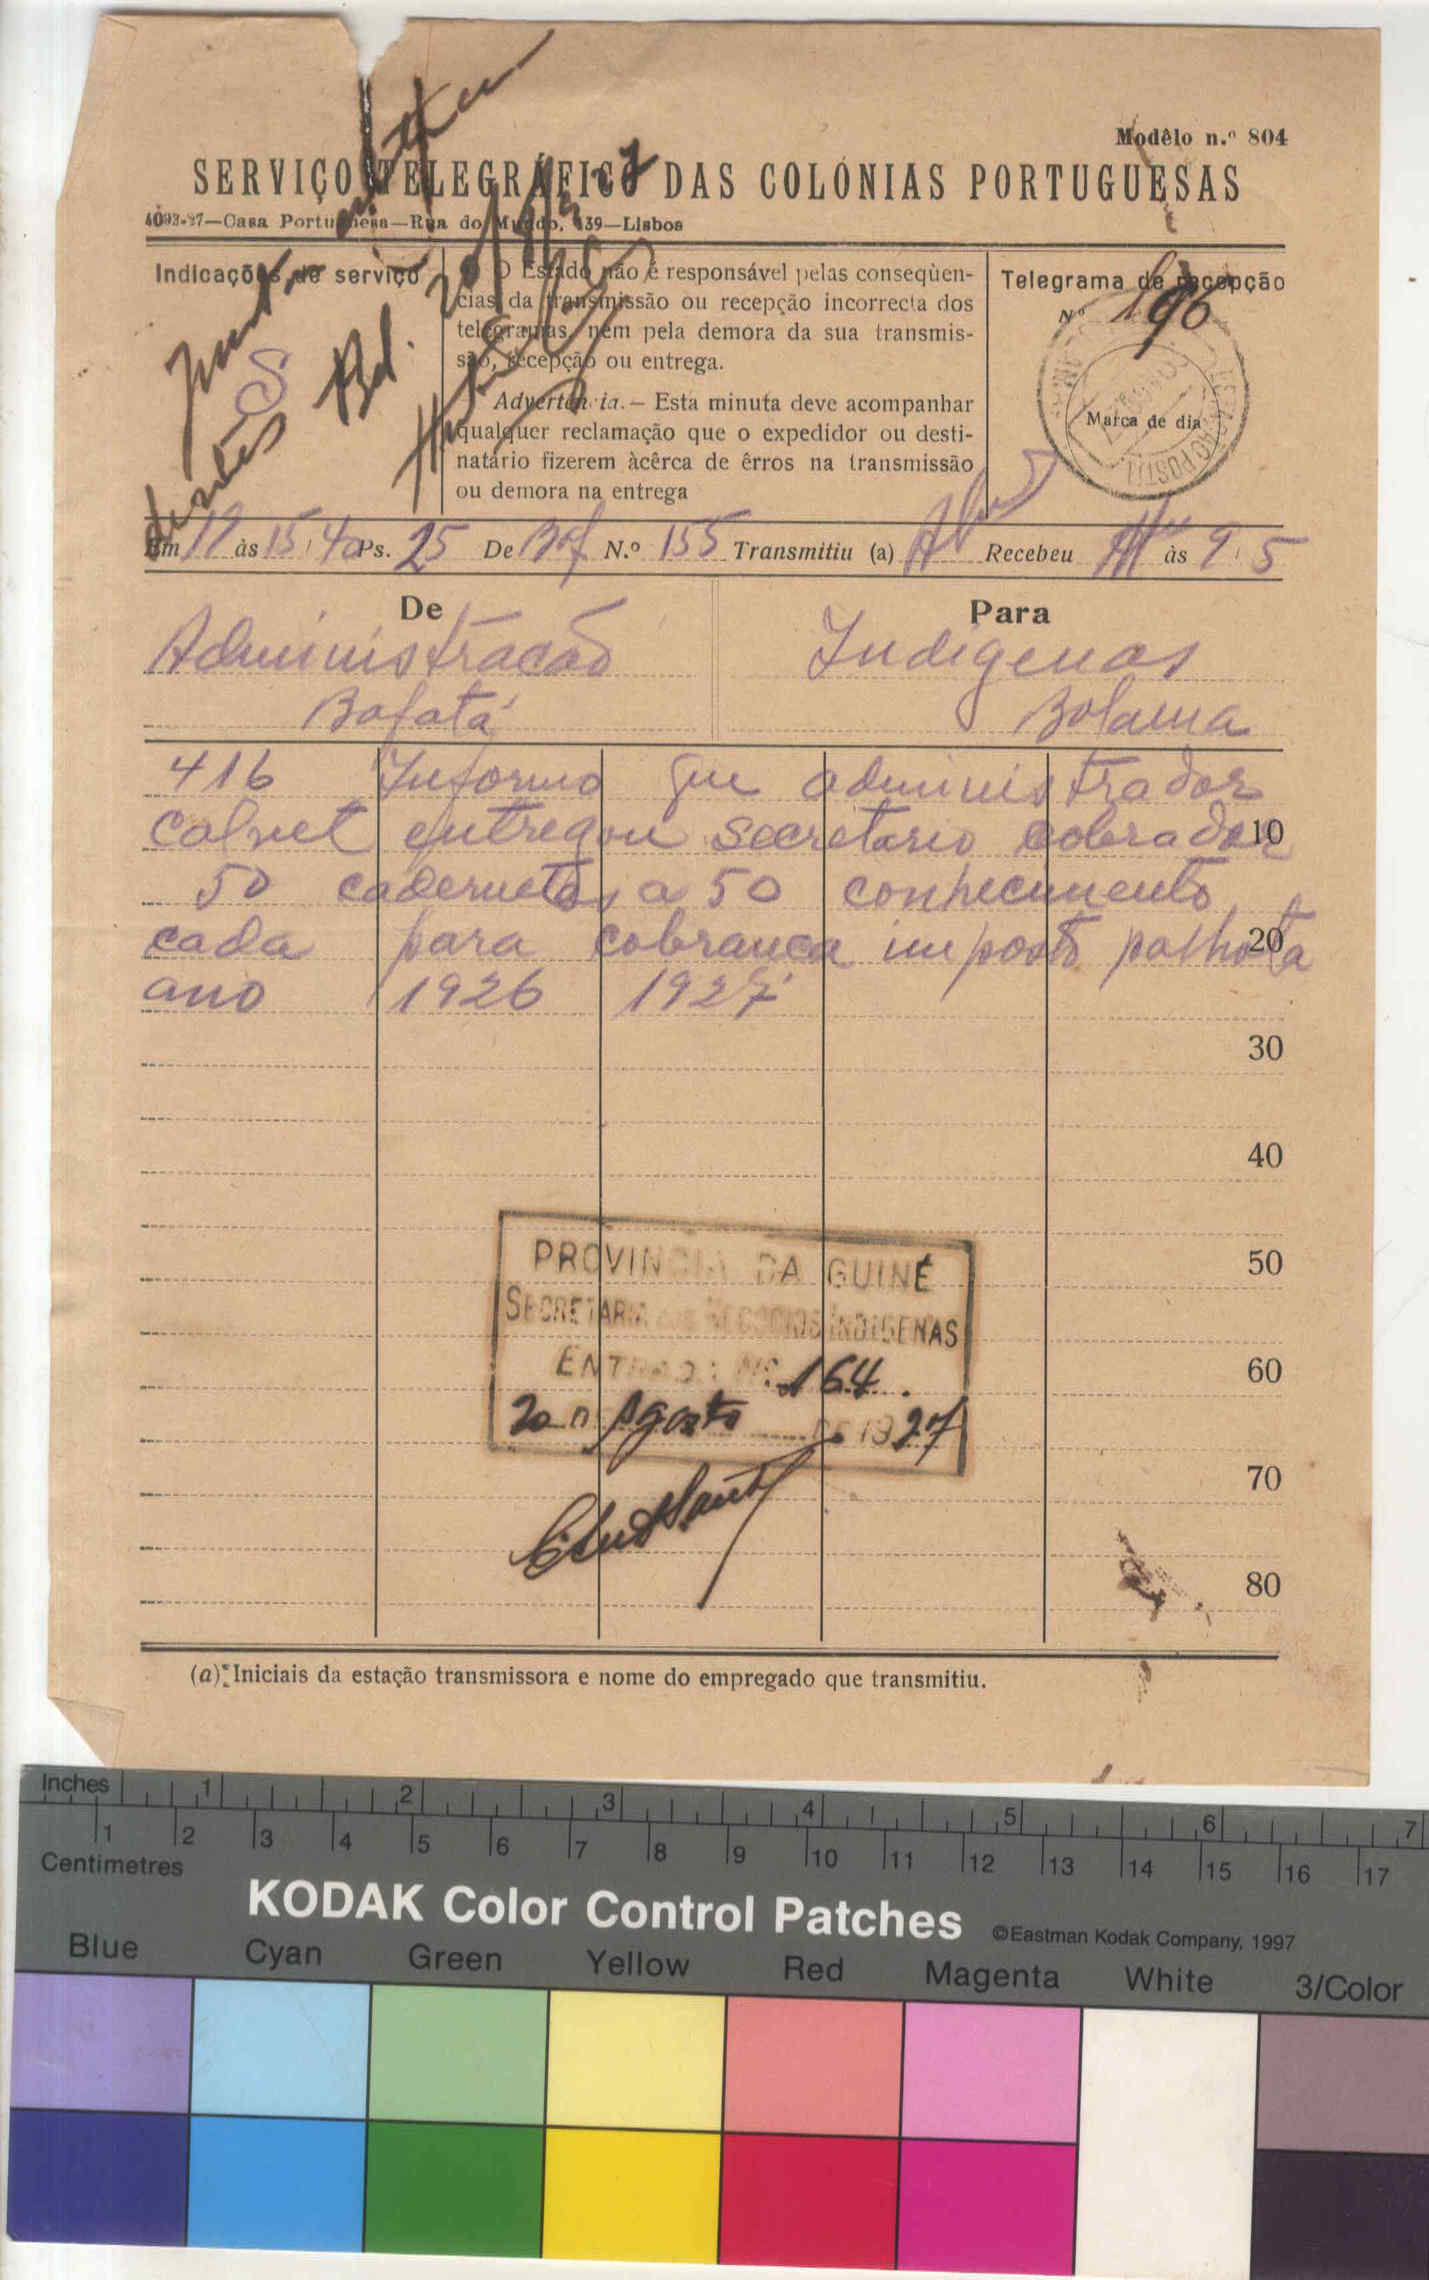 Modêlo n.º 804
SERVIÇO TELEGRÁFICO DAS COLÓNIAS PORTUGUESAS
4093-27—Casa Portuguesa—Rua do Mundo, 139—Lisboa
Indicações de serviço
S
O Estado não é responsável pelas conseqùen-
cias da transmissão ou recepção incorrecta dos
telegramas, nem pela demora da sua transmis-
são, recepção ou entrega.
Advertência.— Esta minuta deve acompanhar
qualquer reclamação que o expedidor ou desti-
natário fizerem àcêrca de êrros na transmissão
ou demora na entrega
Telegrama de recepção
Nº 196
Marca de dia
Em 19 às 15,40 Ps. 25 De Baf N.º 155 Transmitiu (a) Recebeu às 9,5
De
Administracão
Bafatá
Para
Indigenas
Bolama
416 Informo que administrador
Calvet entregou secretario cobrador
10
50 cadernetas a 50 conhecimento
cada para cobranca imposto palhota
20
ano 1926 1927
30
40
50
60
70
80
PROVINCIA DA GUINÉ
SECRETARIA DOS NEGOCIOS INDIGENAS
ENTRADA Nº 164
20 DE Agosto DE 1927
(a) Iniciais da estação transmissora e nome do empregado que transmitiu.
Inches 1 2 3 4 5 6 7
1 2 3 4 5 6 7 8 9 10 11 12 13 14 15 16 17
Centimetres
KODAK Color Control Patches
©Eastman Kodak Company, 1997
Blue Cyan Green Yellow Red Magenta White 3/Color